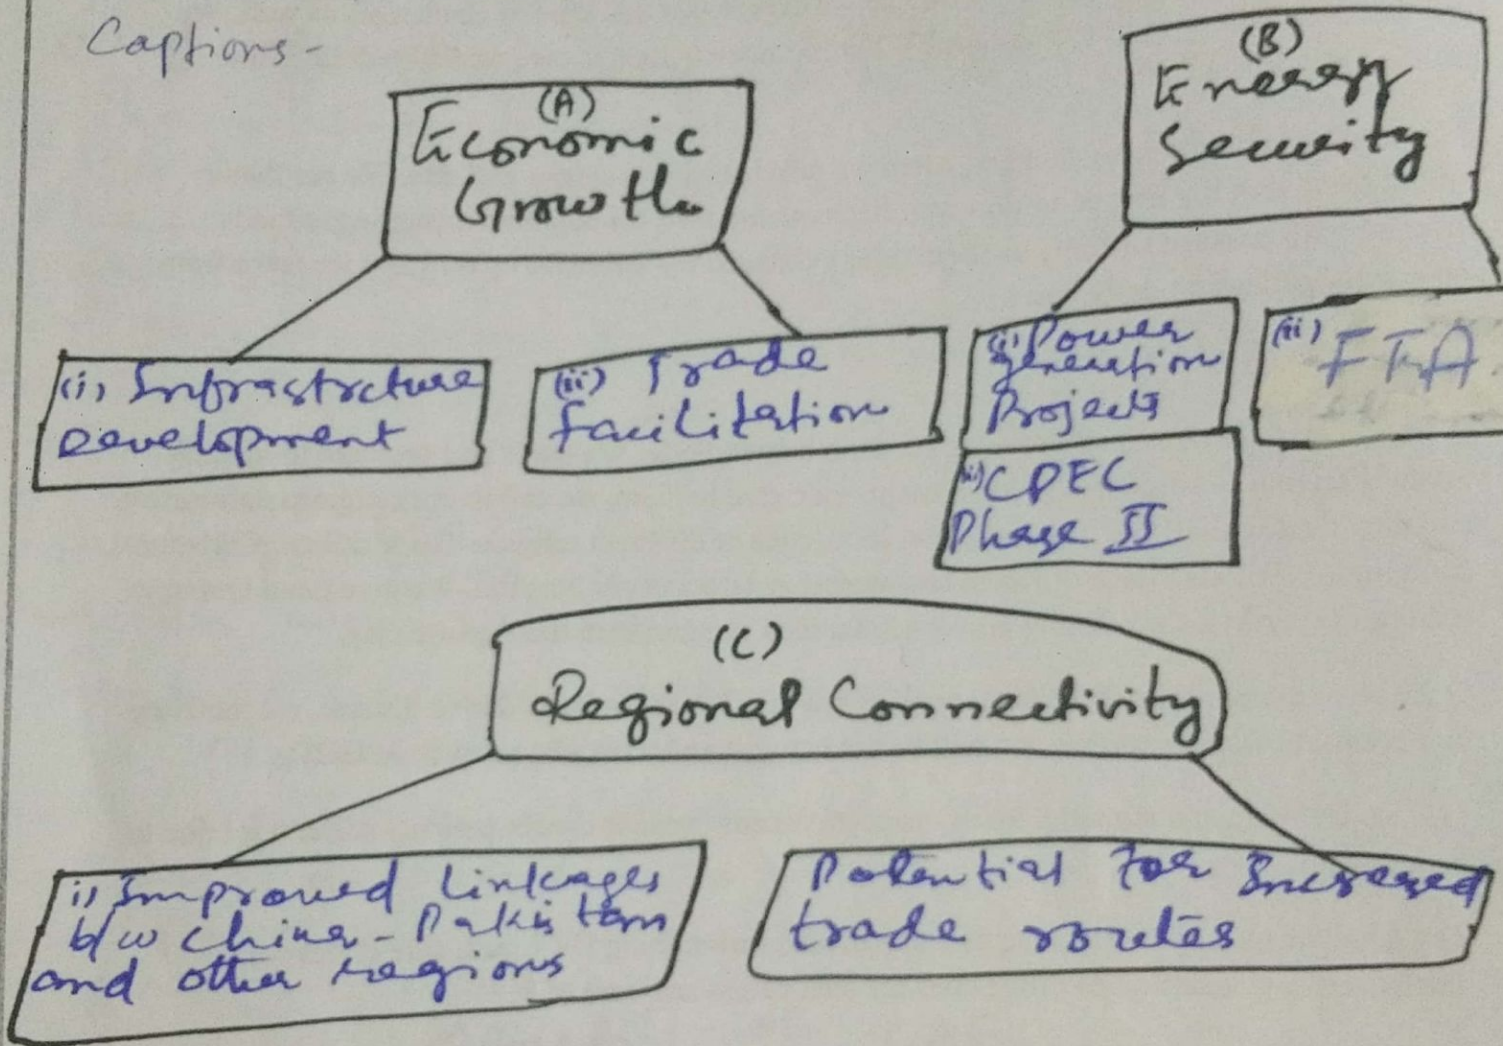 Captions -
(A)
Economic
Growth
(i) Infrastrcture
Development
(ii) Trade
facilitation
(B)
Energy
Security
(i) Power
generation
Projects
(ii) FTA
CPEC
Phase II
(C)
Regional Connectivity
i) Improved linkages
b/w China - Pakistan
and other regions
Potential for Increased
trade routes